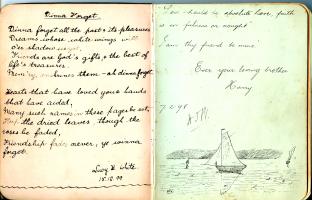 Dinna Forget
Dinna forget all the past & its pleasures
Dreams whose white wings will
o'er shadow
Friends are God's gifts, & the best of
life's treasures.
them - ah dinna forget
Hearts that have loved yours hands
that have aided,
Many such names in these pages be set,
the dried leaves though the
roses be faded,
Friendship fades never, ye winna
forget.
Lucy
15.12.99
should be absolute love, faith
is in fulness or nought
I am thy friend to mine
Ever your loving brother
Harry
7.2.98